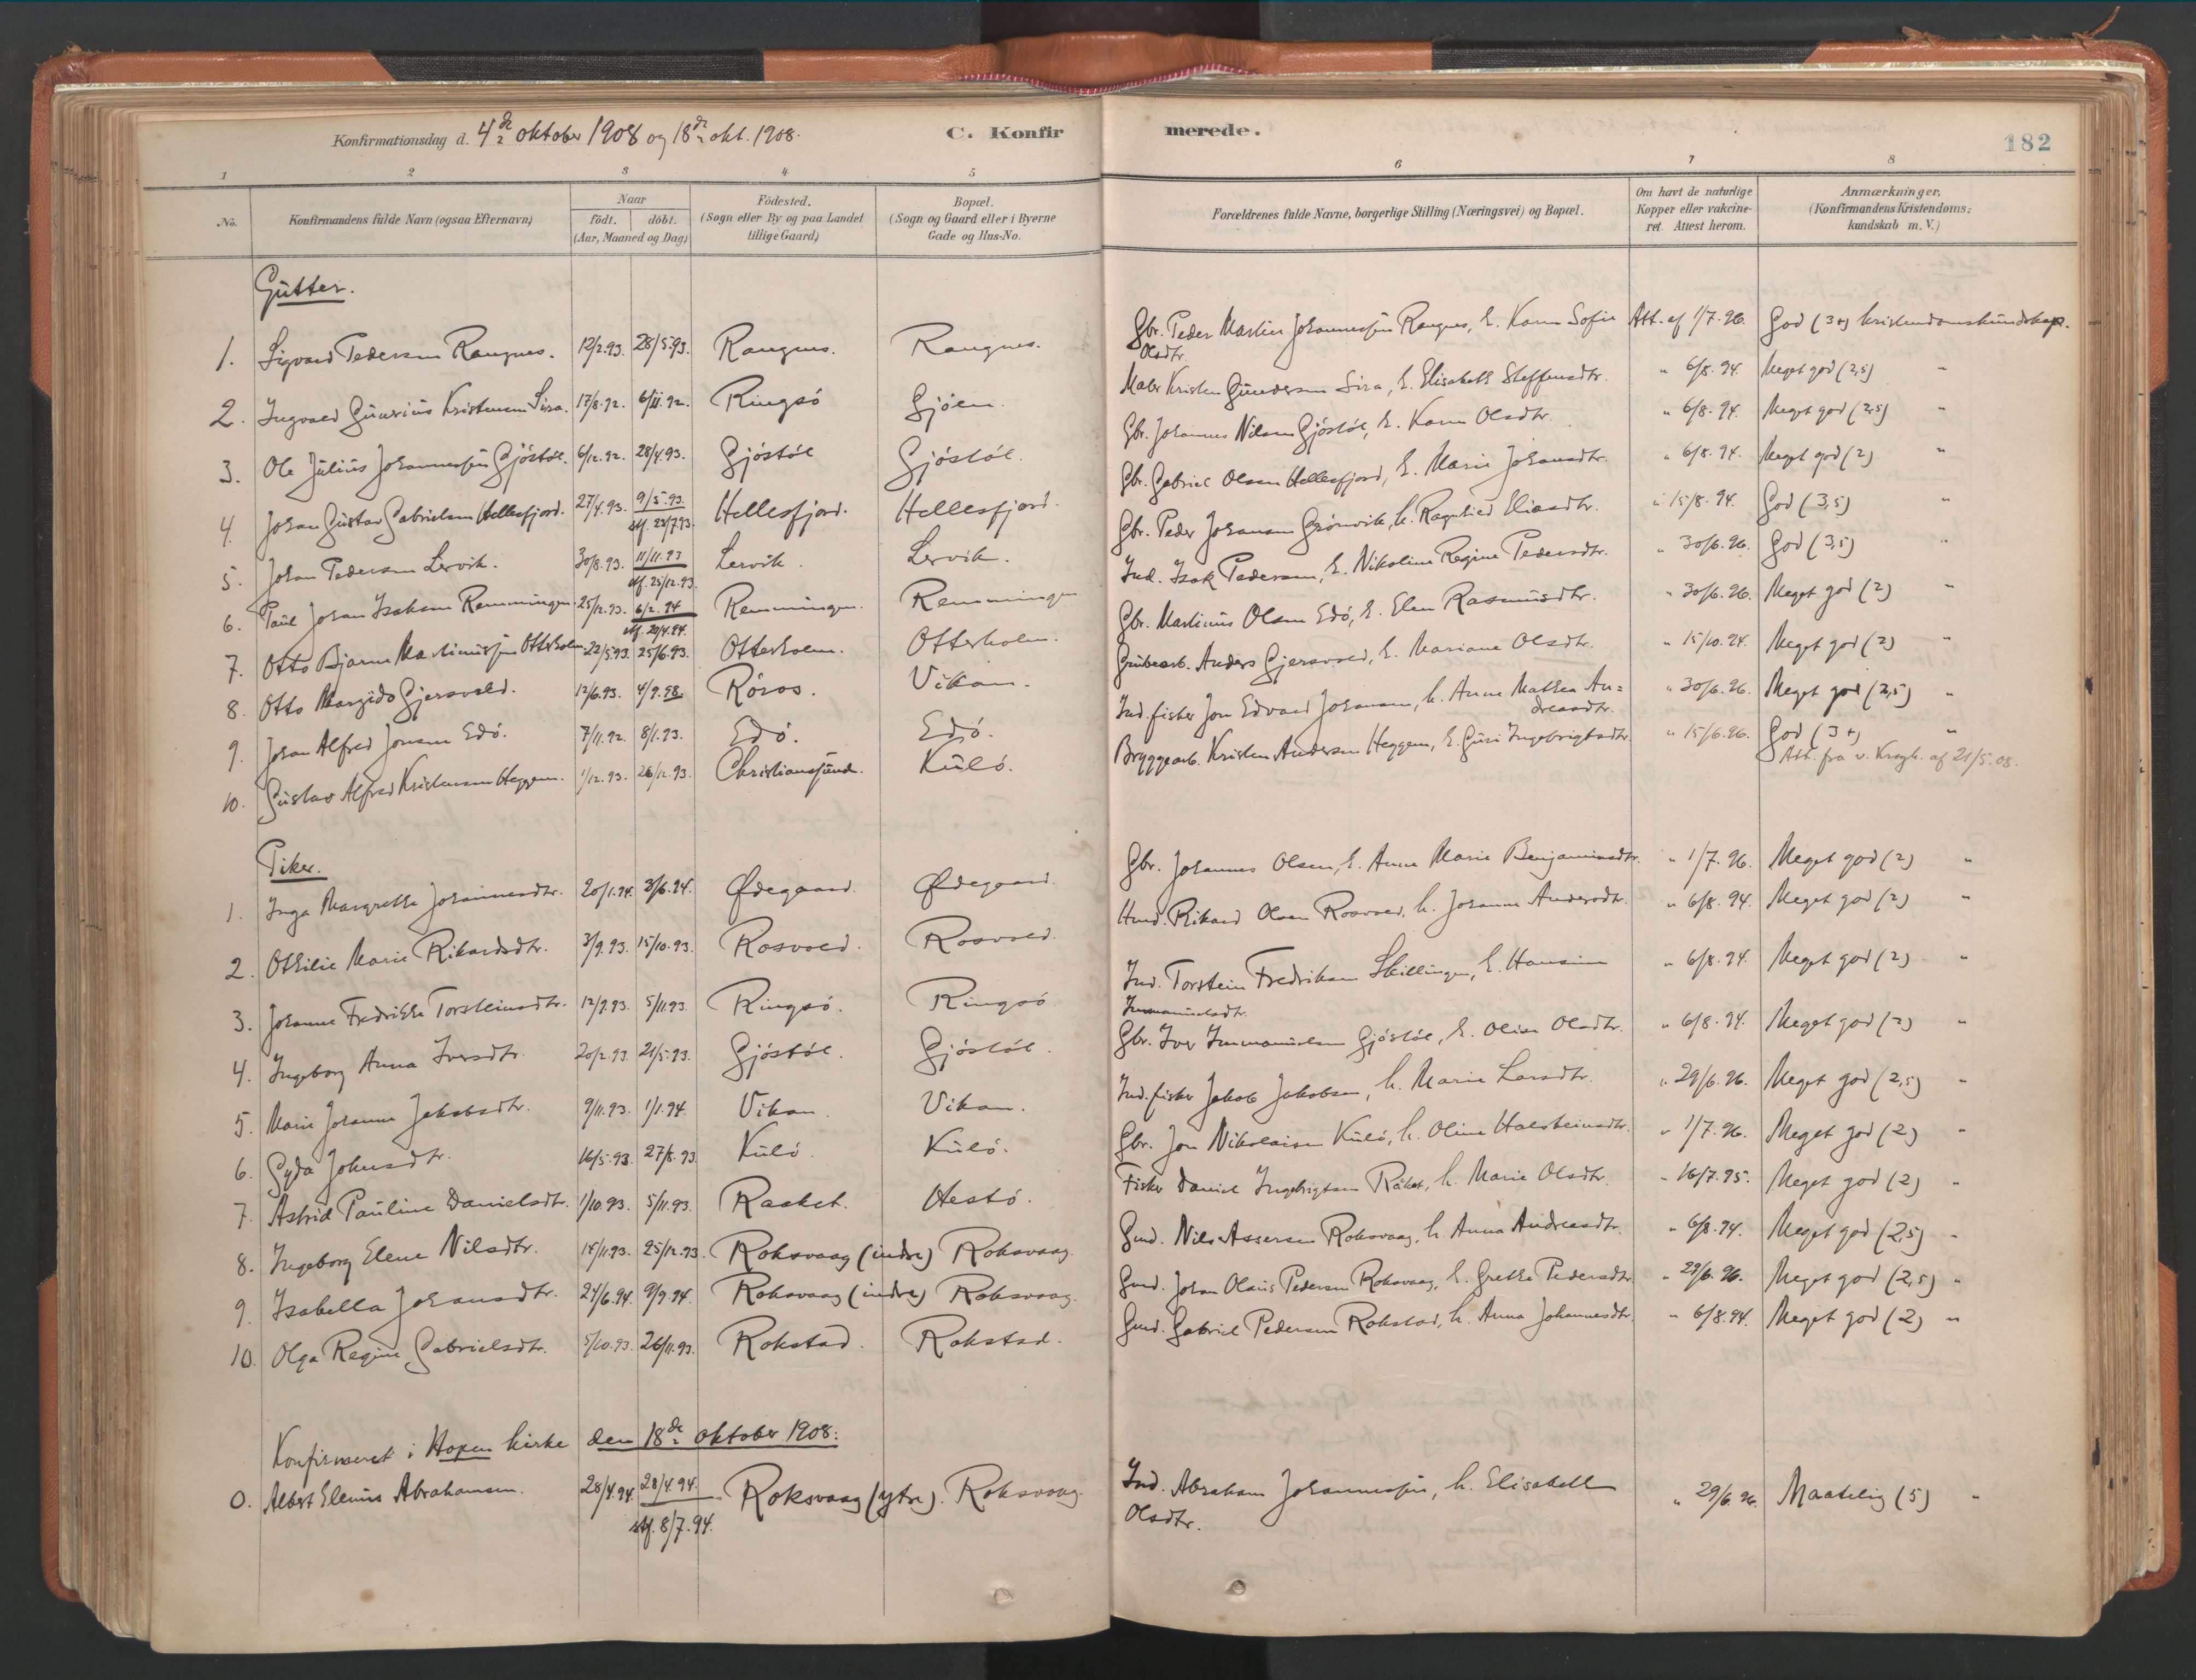 Konfirmationsdag d. 4de oktober 1908 og 18de okt. 1908.
C. Konfir
merede.
182
1 2 3 4 5 6 7 8
No. Konfirmandens fulde Navn (ogsaa Efternavn) Naar født. døbt. (Aar, Maaned og Dag) Födested. (Sogn eller By og paa Landet tillige Gaard) Bopæl. (Sogn og Gaard eller i Byerne Gade og Hus-No. Forældrenes fulde Navne, borgerlige Stilling (Næringsvei) og Bopæl. Om havt de naturlige Kopper eller vakcineret. Attest herom. Anmærkninger. (Konfirmandens Kristendomskundskab m. V.)
Gutter.
1. Sigvard Pedersen Rangnes. 12/2.93. 28/5.93. Rangnes. Rangnes. Gbr. Peder Martin Johannessen Rangnes, h. Karen Sofie Olsdtr. Att. af 1/7.96. God (3+) kristendomskundskap.
2. Ingvald Gunerius Kristensen Sira. 17/8.92. 6/11.92. Ringsø Gjøen. Maler Kristen Gundersen Sira, h. Elisabeth Steffensdtr. " 6/8.94. Meget god (2,5) "
3. Ole Julius Johannessen Gjøstøl. 6/12.92. 28/4.93. Gjøstøl Gjøstøl. Gbr. Johannes Nilsen Gjøstøl, h. Karen Olsdtr. " 6/8.94. Meget god (2,5) "
4. Johan Gustav Gabrielsen Hellesfjord. 27/4.93. 9/5.93. stf. 23/7.93. Hellesfjord. Hellesfjord. Gbr. Gabriel Olsen Hellesfjord, h. Marie Johansdtr. " 6/8.94. Meget god (2) "
5. Johan Pedersen Lervik. 30/8.93. 11/11.93 stf. 25/12.93. Lervik. Lervik. Gbr. Peder Johansen Grønvik, h. Ragnhild Eliasdtr. " 15/8.94. God (3,5) "
6. Paul Johan Isaksen Remmingen. 25/12.93. 6/2.94 stf. 20/4.94. Remmingen. Remmingen Ind. Isak Pedersen, h. Nikoline Regine Pedersdtr. " 30/6.96. God (3,5) "
7. Otto Bjarne Martinussen Otterholm. 22/5.93. 25/6.93. Otterholm. Otterholm. Gbr. Martinus Olsen Edø, h. Elen Rasmusdtr. " 30/6.96. Meget god (2) "
8. Otto Margido Gjersvold. 12/6.93. 4/9.98 Røros. Vikan. Grubearb. Anders Gjersvold, h. Mariane Olsdtr. " 15/10.94. Meget god (2) "
9. Johan Alfred Jonsen Edø. 7/11.92. 8/1.93. Edø. Edø. Ind. fisker Jon Edvard Johansen, h. Anne Mathea Andreasdtr. " 30/6.96. Meget god (2,5) "
10. Gustav Alfred Kristensen Heggem. 1/12.93. 26/12.93. Christianssund. Kulø. Bryggearb. Kristen Andersen Heggem, h. Guri Ingebrigtsdtr. " 15/6.96. God (3+) "
Att. fra v. Krogh. af 21/5.08.
Piker.
1. Inga Margrethe Johannesdtr. 20/1.94. 3/6.94. Ødegaard. Ødegaard. Gbr. Johannes Olsen, h. Anne Marie Benjaminsdtr. " 1/7.96. Meget god (2) "
2. Othilie Marie Rikardsdtr. 3/9.93. 15/10.93. Rosvold. Rosvold. Hmd. Rikard Olsen Rosvold, h. Johanne Andersdtr. " 6/8.94. Meget god (2) "
3. Johanne Fredrikke Torsteinsdtr. 12/9.93. 5/11.93 Ringsø. Ringsø Ind. Torstein Fredriksen Skillingen, h. Hansine Immanuelsdtr. " 6/8.94. Meget god (2) "
4. Ingeborg Anna Iversdtr. 20/2.93. 21/5.93. Gjøstøl. Gjøstøl. Gbr. Iver Immanuelsen Gjøstøl, h. Olise Olsdtr. " 6/8.94. Meget god (2) "
5. Marie Johanne Jakobsdtr. 9/11.93. 1/1.94. Vikan. Vikan. Ind. fisker Jakob Jakobsen, h. Marie Larsdtr. " 29/6.96. Meget god (2,5) "
6. Gyda Johnsdtr. 16/5.93. 27/8.93. Kulø. Kulø. Gbr. Jon Nikolaisen Kulø, h. Oline Halsteinsdtr. " 1/7.96. Meget god (2) "
7. Astrid Pauline Danielsdtr. 1/10.93. 5/11.93. Raaket. Hestø. Fisker Daniel Ingebrigtsen Råket, h. Marie Olsdtr. " 16/7.95. Meget god (2) "
8. Ingeborg Elene Nilsdtr. 14/11.93. 25/12.93. Roksvaag (indre) Roksvaag. Gmd. Nils Assersen Roksvaag, h. Anna Andreasdtr. " 6/8.94. Meget god (2,5) "
9. Isabella Johansdtr. 24/6.94. 9/9.94. Roksvaag (indre) Roksvaag. Gmd. Johan Olaus Pedersen Roksvaag, h. Grethe Pedersdtr. " 29/6.96. Meget god (2,5) "
10. Olga Regine Gabrielsdtr. 5/10.93. 26/11.93. Rokstad. Rokstad. Gmd. Gabriel Pedersen Rokstad, h. Anna Johannesdtr. " 6/8.94. Meget god (2) "
Konfirmeret i Hopen kirke den 18de oktober 1908:
0. Albert Elenius Abrahamsen. 28/4.94. 28/4.94. stf. 8/7.94. Roksvaag (ytre). Roksvaag. Ind. Abraham Johannessen, h. Elisabeth Olsdtr. " 29/6.96. Maatelig (5) "